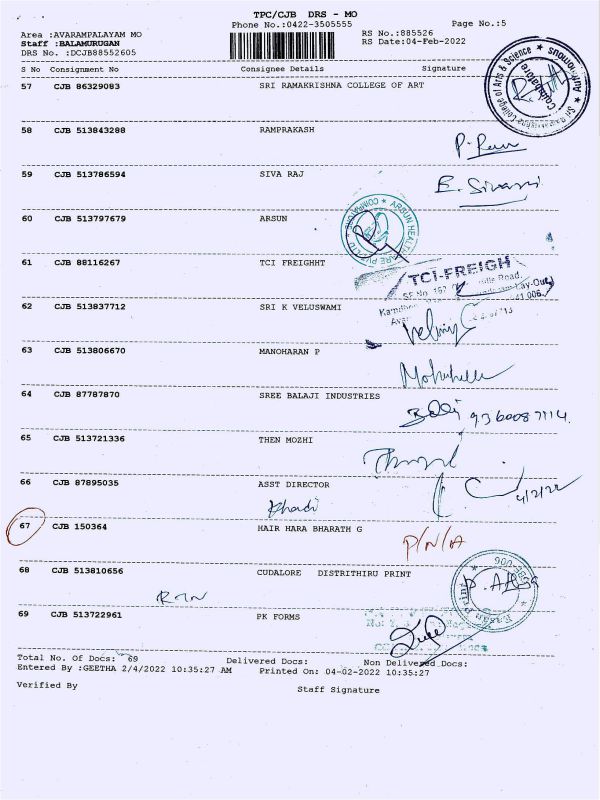 TPC/CJB DRS - MO
Phone No.:0422-3505555
Page No.:5
Area :AVARAMPALAYAM MO
RS No.:885526
Staff :BALAMURUGAN
RS Date:04-Feb-2022
DRS No. :DCJB88552605
S No Consignment No Consignee Details Signature
57 CJB 86329083 SRI RAMAKRISHNA COLLEGE OF ART
College of Arts & Science
Coimbatore
58 CJB 513843288 RAMPRAKASH
59 CJB 513786594 SIVA RAJ
60 CJB 513797679 ARSUN
61 CJB 88116267 TCI FREIGHHT
TCI-FREIGH
62 CJB 513837712 SRI K VELUSWAMI
63 CJB 513806670 MANOHARAN P
64 CJB 87787870 SREE BALAJI INDUSTRIES
65 CJB 513721336 THEN MOZHI
66 CJB 87895035 ASST DIRECTOR
4/2/22
Khadi
67 CJB 150364 HAIR HARA BHARATH G
P/N/A
68 CJB 513810656 CUDALORE DISTRITHIRU PRINT
69 CJB 513722961 PK FORMS
Total No. Of Docs: 69 Delivered Docs: Non Delivered Docs:
Entered By :GEETHA 2/4/2022 10:35:27 AM Printed On: 04-02-2022 10:35:27
Verified By
Staff Signature